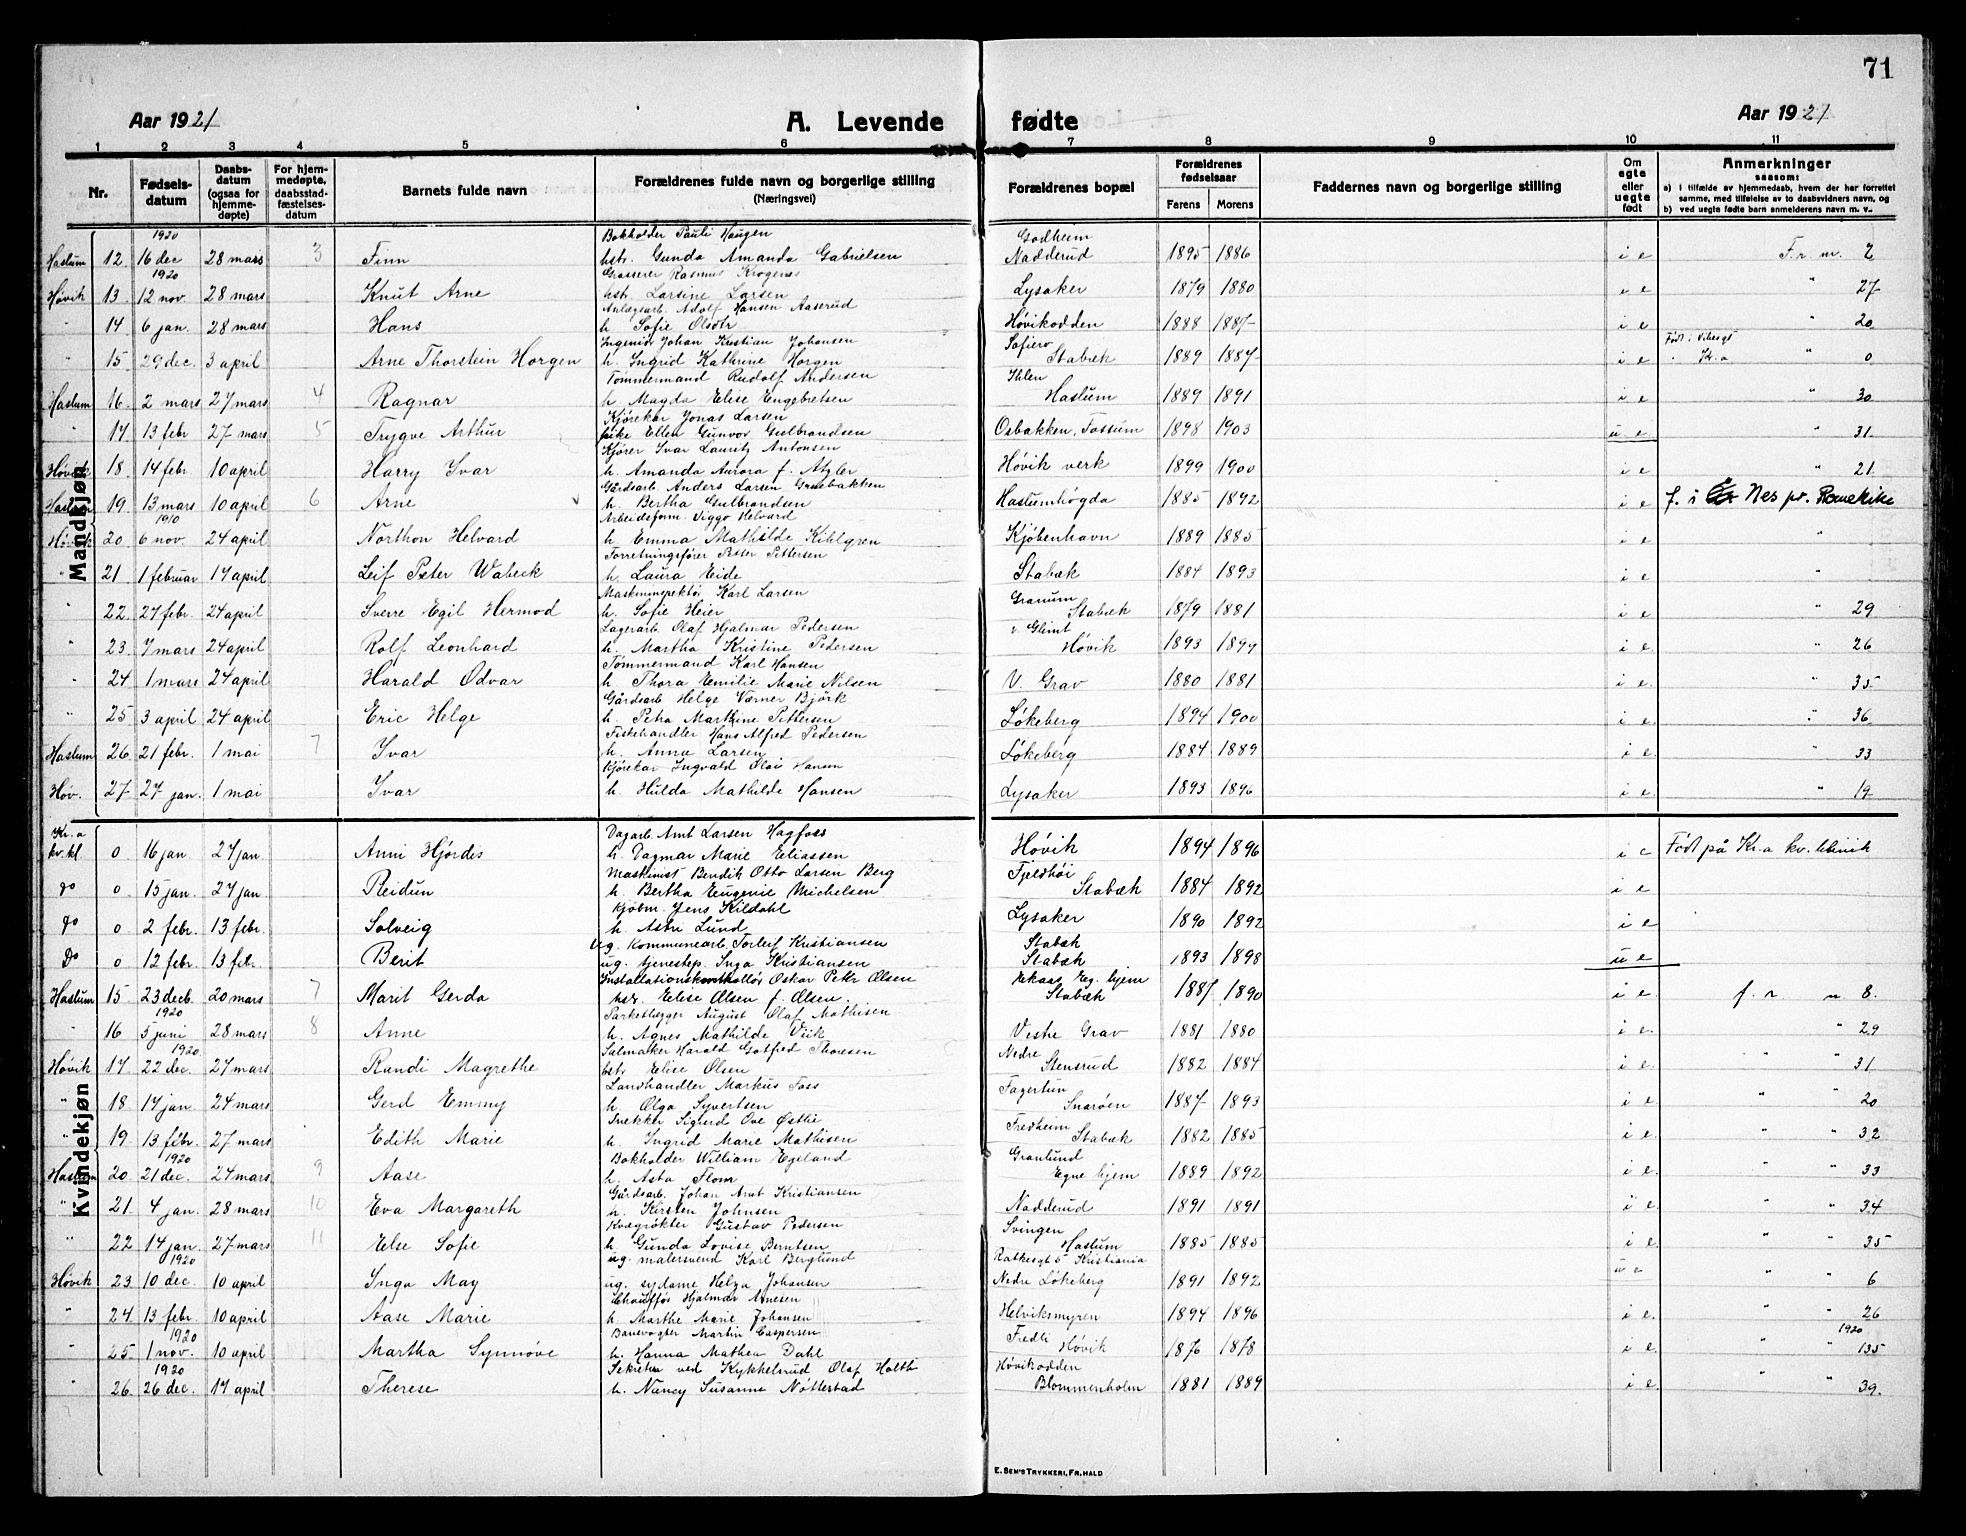 71
Aar 1921
A. Levende fødte
Aar 1921
1 2 3 4 5 6 7 8 9 10 11
Nr.
Fødselsdatum
Daabsdatum (ogsaa for hjemmedøpte)
For hjemmedøpte, daabsstadfæstelsesdatum
Barnets fulde navn
Forældrenes fulde navn og borgerlige stilling (Næringsvei)
Forældrenes bopæl
Forældrenes fødselsaar
Farens
Morens
Faddernes navn og borgerlige stilling
Om egte eller uegte født
Anmerkninger
saasom:
a) i tilfælde av hjemmedaab, hvem der har forrettet samme, med tilføielse av to daabsvidners navn, og
b) ved uegte fødte barn anmelderens navn m. v.
Mandkjøn
1920 Bokholder Pauli Haugen Godheim
Haslum 12 16 dec 28 mars 3 Finn hstr. Gunda Amanda Gabrielsen Nadderud 1895 1886 i e F. r. nr. 2
1920 Grosserer Rasmus Krogenes
Høvik 13 12 nov. 28 mars Knut Arne hstr. Larsine Larsen Lysaker 1879 1880 i e " 27
Anlægsarb. Adolf Hansen Aaserud
" 14 6 jan. 28 mars Hans h. Sofie Olsdtr Høvikodden 1888 1887 i e " 20
Ingeniør Johan Kristian Johansen Sofiero Født i Vibesgt
" 15 29 dec. 3 april Arne Thorstein Horgen h. Ingrid Kathrine Horgen Stabæk 1889 1887 i e Kr.a " 0
Tømmermand Rudolf Andersen Ihlen
Haslum 16 2 mars 27 mars 4 Ragnar h. Magda Elise Engebretsen Haslum 1889 1891 i e " 30
Kjørekar Jonas Larsen
" 17 13 febr 27 mars 5 Trygve Arthur pike Ellen Gunvor Gulbrandsen Osbakken, Fossum 1898 1903 u. e " 31
Kjører Ivar Lauritz Antonsen
Høvik 18 14 febr 10 april Harry Ivar h. Amanda Aurora f. Atzler Høvik verk 1899 1900 i e " 21
Gårdsarb. Anders Larsen Gruebakken
Haslum 19 13 mars 10 april 6 Arne h. Bertha Gulbrandsen Haslumhögda 1885 1892 i e f. i Nes pr. Romerike
1910 Arbeidsform. Viggo Helvard
Høvik 20 6 nov. 24 april Northon Helvard h. Emma Mathilde Kihlgren Kjøbenhavn 1889 1885 i e "
Forretningsfører Peter Pettersen
" 21 1 februar 17 april Leif Peter Wabeck h. Laura Eide Stabæk 1884 1893 i e "
Maskininspektør Karl Larsen Granum
" 22 27 febr. 24 april Sverre Egil Hermod h. Sofie Heier Stabæk 1879 1881 i e " 29
Lagerarb. Olaf Hjalmar Pedersen v. Glimt
" 23 7 mars 24 april Rolf Leonhard h. Martha Kristine Pedersen Høvik 1893 1899 i e " 26
Tømmermand Karl Hansen
" 24 1 mars 24 april Harald Odvar h. Thora Emilie Marie Nilsen V. Grav 1880 1881 i e " 35
Gårdsarb Helge Værner Bjørk
" 25 3 april 24 april Eric Helge h. Petra Martine Pettersen Løkeberg 1894 1900 i e " 36
Fiskehandler Hans Alfred Pedersen
Haslum 26 21 febr. 1 mai 7 Ivar h. Anna Larsen Løkeberg 1884 1889 i e " 33
Kjørekar Ingvald Hansen
Høv. 27 27 jan. 1 mai Ivar h. Hulda Mathilde Hansen Lysaker 1893 1896 i e " 19
Kvindekjøn
Kr.a Dagarb. Arnt Larsen Hagfoss
kv.kl. 0 16 jan 27 jan Anni Hjørdis h. Dagmar Marie Eliassen Høvik 1894 1896 i e Født på Kr.a kv. klinik
Maskinist Bendik Otto Larsen Berg Fjeldhøi
do 0 15 jan. 27 jan Reidun h. Bertha Eugenie Michelsen Stabæk 1884 1892 i e
Kjøbm. Jens Kildahl
do 0 2 febr. 13 febr. Solveig h. Astri Lund Lysaker 1890 1892 i e
Ug. kommunearb. Torleif Kristiansen Stabæk
Do 0 12 febr. 13 febr. Berit ug. tjenestep. Inga Kristiansen Stabæk 1893 1898 u e
Installationskontrollør Oskar Petr Olsen hjem
Haslum 15 23 decb. 20 mars 7 Marit Gerda hsr. Elise Olsen f. Olsen. Stabæk 1887 1890 i e f. r n 8.
1920 Parketlægger August Olaf Mathisen
" 16 5 juni 28 mars 8 Anne h. Agnes Mathilde Viik Vestre Grav 1881 1880 i e " 29
1920 Salmaker Harald Gotfred Thoresen Nedre
Høvik 17 22 dec. 27 mars Randi Magrethe hstr. Elise Olsen Stensrud 1882 1884 i e " " 31
Landhandler Markus Foss Fagertun
" 18 17 jan. 24 mars Gerd Emmy h. Olga Syvertsen Snarøen 1887 1893 i e " " 20
Snekker Sigurd Ove Østlie Fredheim
" 19 13 febr. 27 mars Edith Marie h. Ingrid Marie Mathisen Stabæk 1882 1885 i e " " 32
1920 Bokholder William Egeland Granlund
Haslum 20 21 dec. 24 mars 9 Aase h. Asta Flom Egne hjem 1889 1892 i e " " 33
Gårdsarb. Johan Arnt Kristiansen
" 21 4 jan. 28 mars 10 Eva Margareth h. Kirsten Johnsen Nadderud 1891 1891 i e " " 34
Kvægrøkter Gustav Pedersen Svingen
" 22 14 jan. 27 mars 11 Else Sofie h. Gunda Lovise Berntsen Haslum 1885 1885 i e " " 35
1920 ug. malersvend Karl Berglund Ratkesgt 5 Kristiania
Høvik 23 10 dec. 10 april Inga May ug. sydame Helga Johansen Nedre Løkeberg 1891 1892 u e " " 6
Chauffør Hjalmar Arnesen
" 24 13 febr. 10 april Aase Marie h. Marthe Marie Johansen Helviksmyren 1894 1896 i e " " 26
1920 Banevogter Martin Caspersen Fredli 1920
" 25 1 nov. 10 april Martha Synnøve h. Hanna Mathea Dahl Høvik 1876 1878 i e " " 135
1920 Sekretær ved Kykkelsrud Olaf Holth Høvikodden
" 26 26 dec. 17 april Therese h. Nancy Susanne Nøtterstad Blommenholm 1881 1889 i e " " 39.
E. SEM'S TRYKKERI, FR.HALD